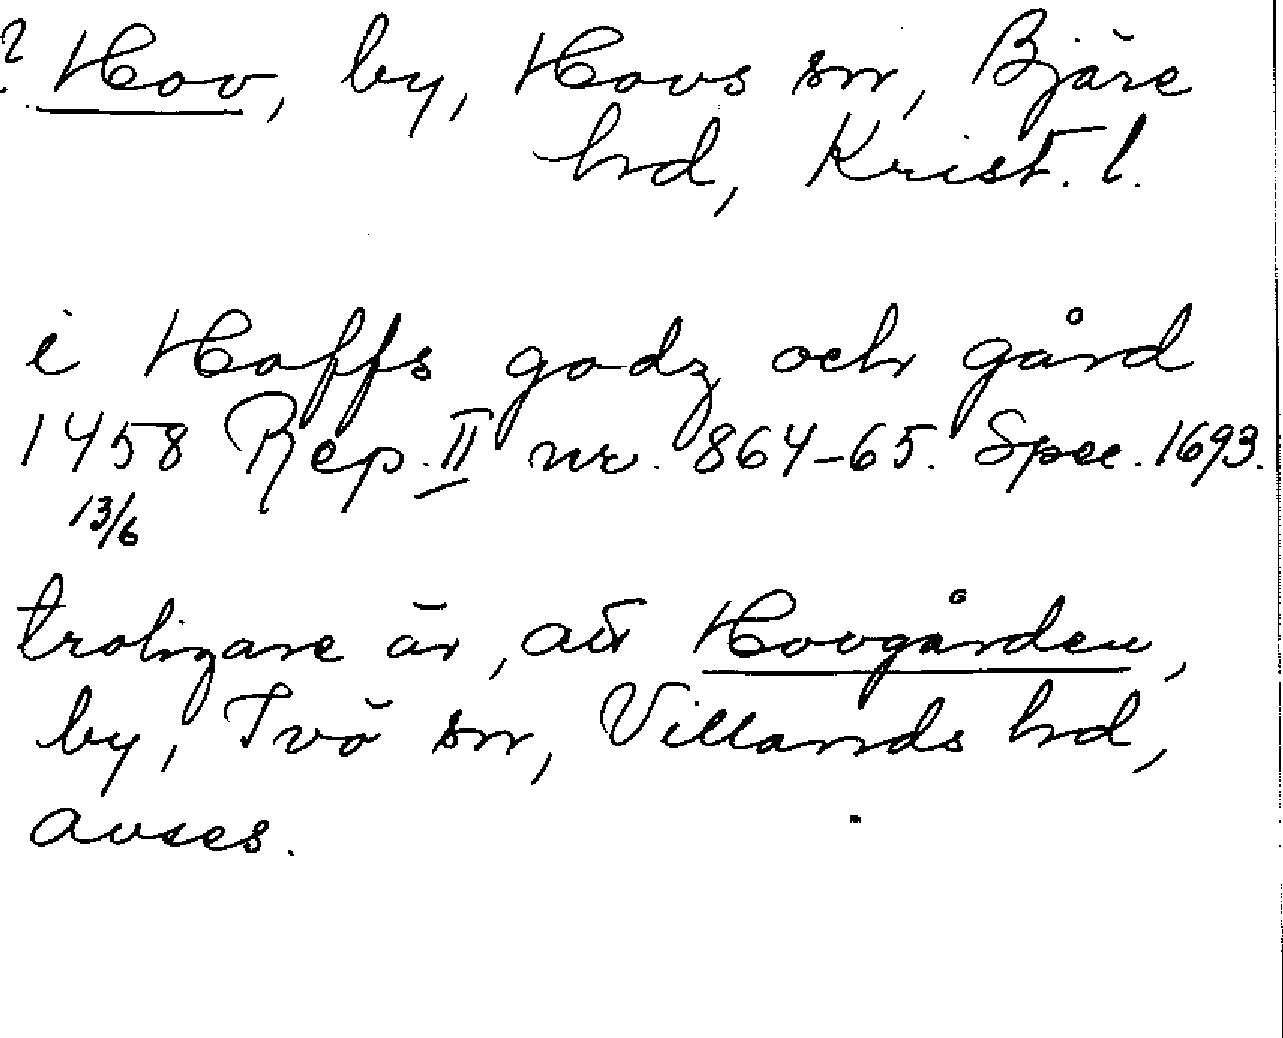 ? Hov, by, Hovs sn, Bjäre
hd, Krist. l.
i Hoffs godz och gård
1458 Rep. II nr. 864-65. Spec. 1693.
13/6
troligare är, att Hovgården,
by, Ivö sn, Villands hd,
avses.